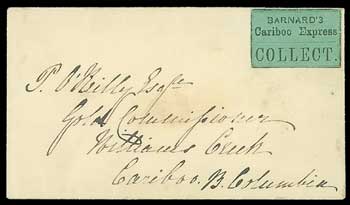 BARNARD'S
Cariboo Express
COLLECT.
P. O'Reilly Esqre
Gold Commissioner
Williams Creek
Cariboo. B. Columbia